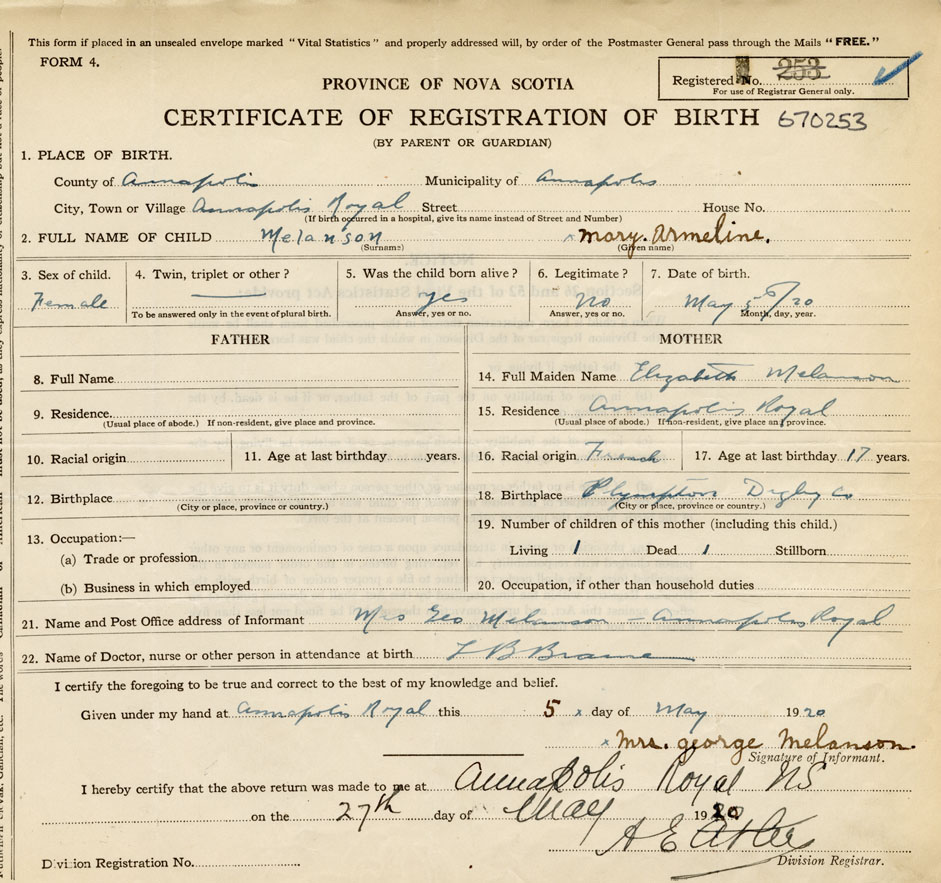 This form if placed in an unsealed envelope marked "Vital Statistics" and properly addressed will, by order of the Postmaster General pass through the Mails "FREE."
FORM 4.
Registered No. 253
For use of Registrar General only.
PROVINCE OF NOVA SCOTIA
CERTIFICATE OF REGISTRATION OF BIRTH 670253
(BY PARENT OR GUARDIAN)
1. PLACE OF BIRTH.
County of Annapolis Municipality of Annapolis
City, Town or Village Annapolis Royal Street House No.
(If birth occurred in a hospital, give its name instead of Street and Number)
2. FULL NAME OF CHILD Melanson x mary. Armeline.
(Surname) (Given name)
3. Sex of child. 4. Twin, triplet or other? 5. Was the child born alive? 6. Legitimate? 7. Date of birth.
Female yes No May 5/20
To be answered only in the event of plural birth. Answer, yes or no. Answer, yes or no. Month, day, year.
FATHER MOTHER
8. Full Name
14. Full Maiden Name Elizabeth Melanson
9. Residence.
(Usual place of abode.) If non-resident, give place and province.
15. Residence Annapolis Royal
(Usual place of abode.) If non-resident, give place and province.
10. Racial origin 11. Age at last birthday years.
16. Racial origin French 17. Age at last birthday 17 years.
12. Birthplace
(City or place, province or country.)
18. Birthplace Plympton Digby Co
(City or place, province or country.)
13. Occupation:—
(a) Trade or profession
(b) Business in which employed
19. Number of children of this mother (including this child.)
Living 1 Dead 1 Stillborn
20. Occupation, if other than household duties
21. Name and Post Office address of Informant Mrs Geo Melanson - Annapolis Royal
22. Name of Doctor, nurse or other person in attendance at birth L B Braine
I certify the foregoing to be true and correct to the best of my knowledge and belief.
Given under my hand at Annapolis Royal this 5 x day of May 1920
x Mrs. george Melanson.
Signature of Informant.
I hereby certify that the above return was made to me at Annapolis Royal NS
on the 27th day of May 1920
A E
Division Registrar.
Division Registration No.